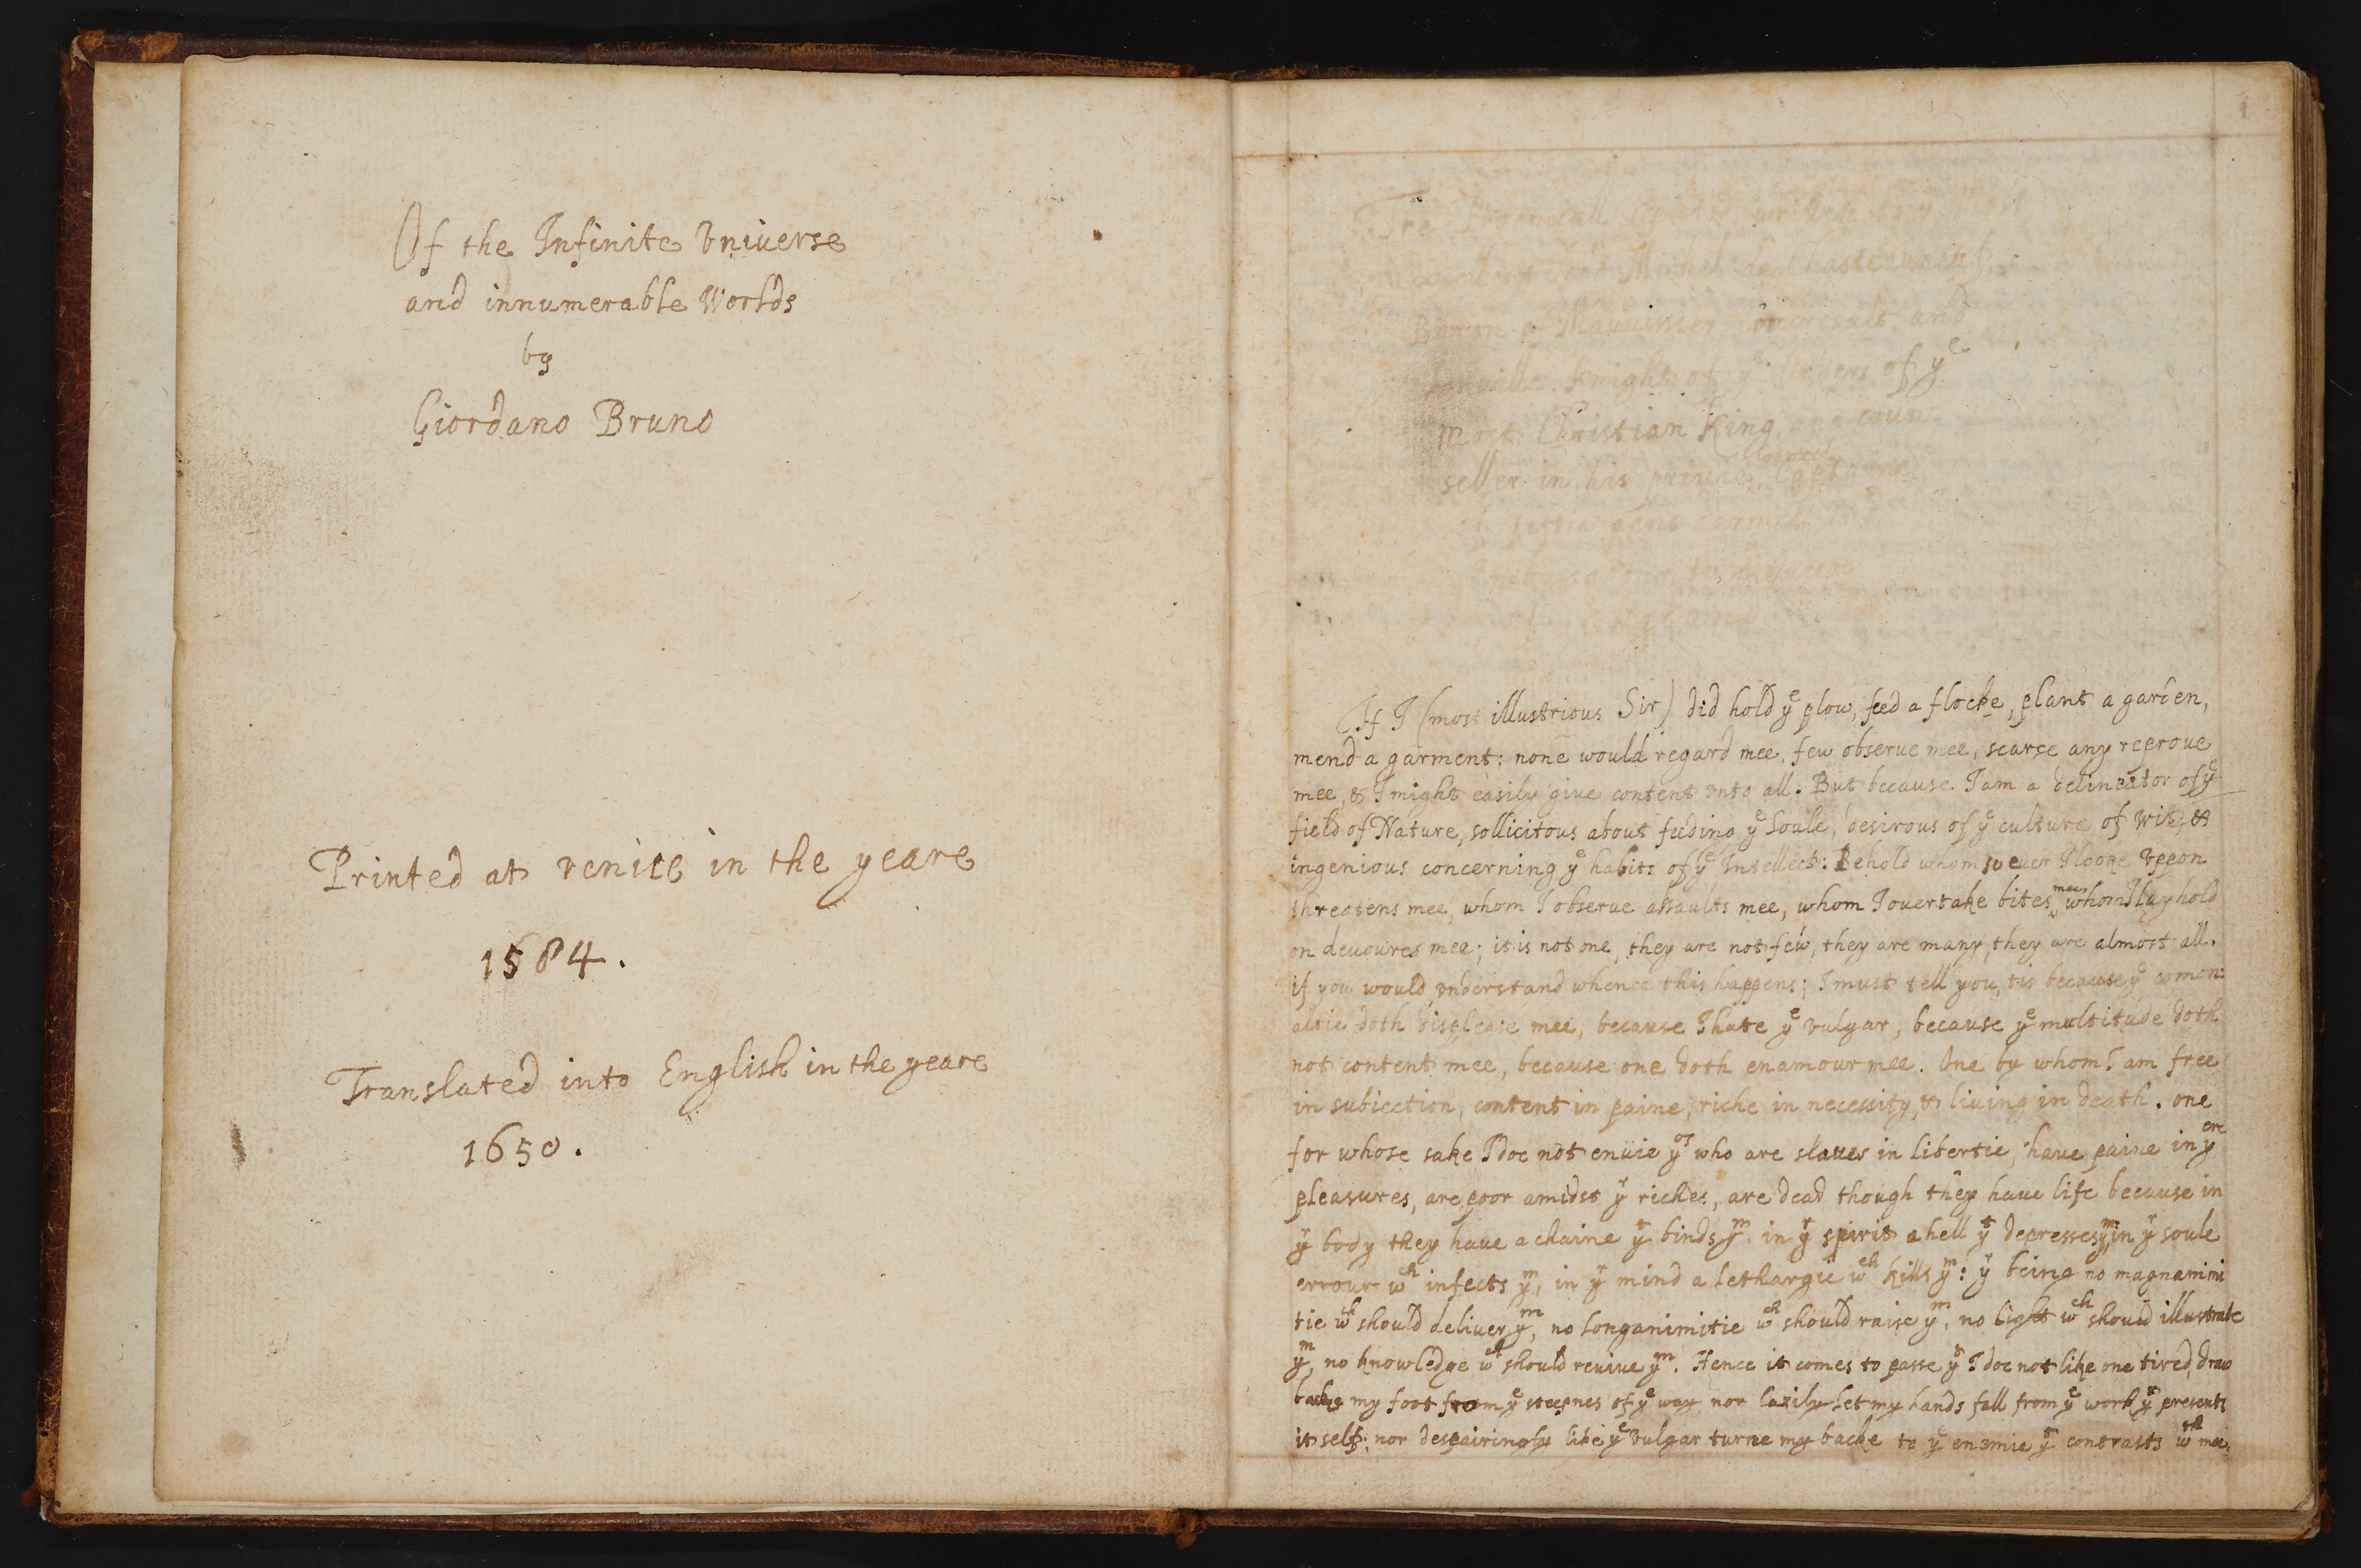 Of the Infinite Vniuerse
and innumerable Worlds
by
Giordano Bruno
Printed at venice in the yeare
1584.
Translated into English in the yeare
1650.
The Proemiall Epistle written to yᵉ Most
Lord Michel de Chasteauneuf
Baron of Mauuissier, Concresalt and
Knight of yᵉ Orders of yᵉ
most Christian King and coun-
seller in his priuie Captaine
of fiftie armed, and
Embassadour to
If I (most illustrious Sir) did hold yᵉ plow, feed a flocke, plant a garden,
mend a garment: none would regard mee, few obserue mee, scarse any reproue
mee, & I might easily giue content vnto all. But because I am a delineator of yᵉ
field of Nature, sollicitous about feeding yᵉ Soule, desirous of yᵉ culture of wit, &
ingenious concerning yᵉ habits of yᵉ Intellect: Behold whom soeuer I looke vppon
threatens mee, whom I obserue assaults mee, whom I ouertake bites mee, whom I lay hold
on deuoures mee; it is not one, they are not few, they are many, they are almost all.
if you would vnderstand whence this happens; I must tell you, tis because yᵉ comon:
altie doth displease mee, because I hate yᵉ vulgar, because yᵉ multitude doth
not content mee, because one doth enamour mee. One by whom I am free
in subiection, content in paine, riche in necessity, & liuing in death. one
for whose sake I doe not enuie yᵒˢ who are slaues in libertie, haue paine in yᵉⁱʳ
pleasures, are poor amidst yʳ riches, are dead though they haue life because in
yʳ body they haue a chaine yᵗ binds yᵐ, in yʳ spirit a hell yᵗ depresses yᵐ, in yʳ soule
errour wᶜʰ infects yᵐ, in yʳ mind a lethargie wᶜʰ kills yᵐ: yʳ being no magnanimi
tie wᶜʰ should deliuer yᵐ, no longanimitie wᶜʰ should raise yᵐ, no light wᶜʰ should illustrate
yᵐ, no knowledge wᶜʰ should reuiue yᵐ. Hence it comes to passe yᵗ I doe not like one tired, draw
backe my foot from yᵉ steepnes of yᵉ way nor lazily let my hands fall from yᵉ work yᵗ presents
it self; nor despairingly like yᵉ vulgar turne my backe to yᵉ enemie yᵗ contrasts wᵗʰ mee.